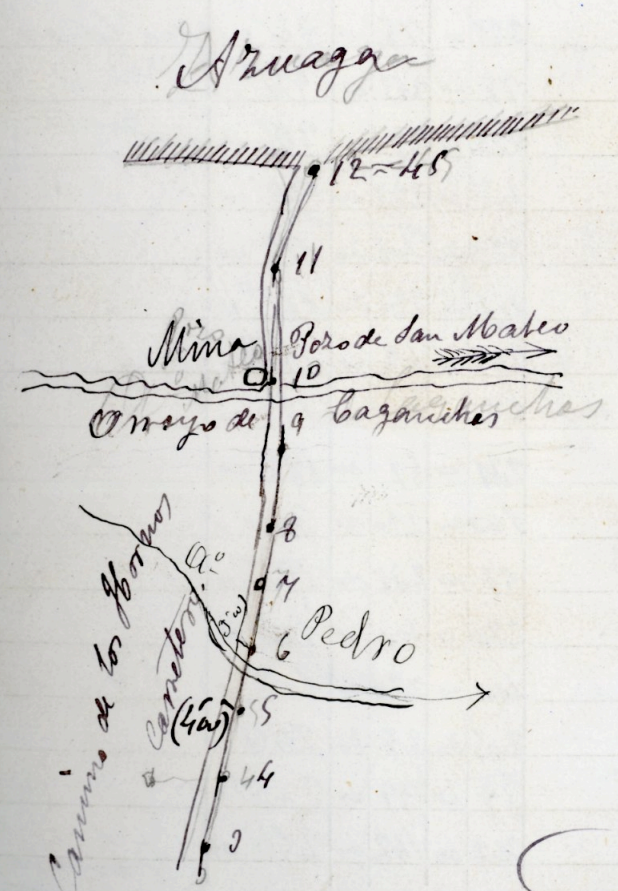 Azuaga
12-45
11
Mina Pozo de San Mateo
10
Arroyo de Caganchas
9
8
Aº Pedro
7
6
5
44
Camino de los Hornos
Carretera